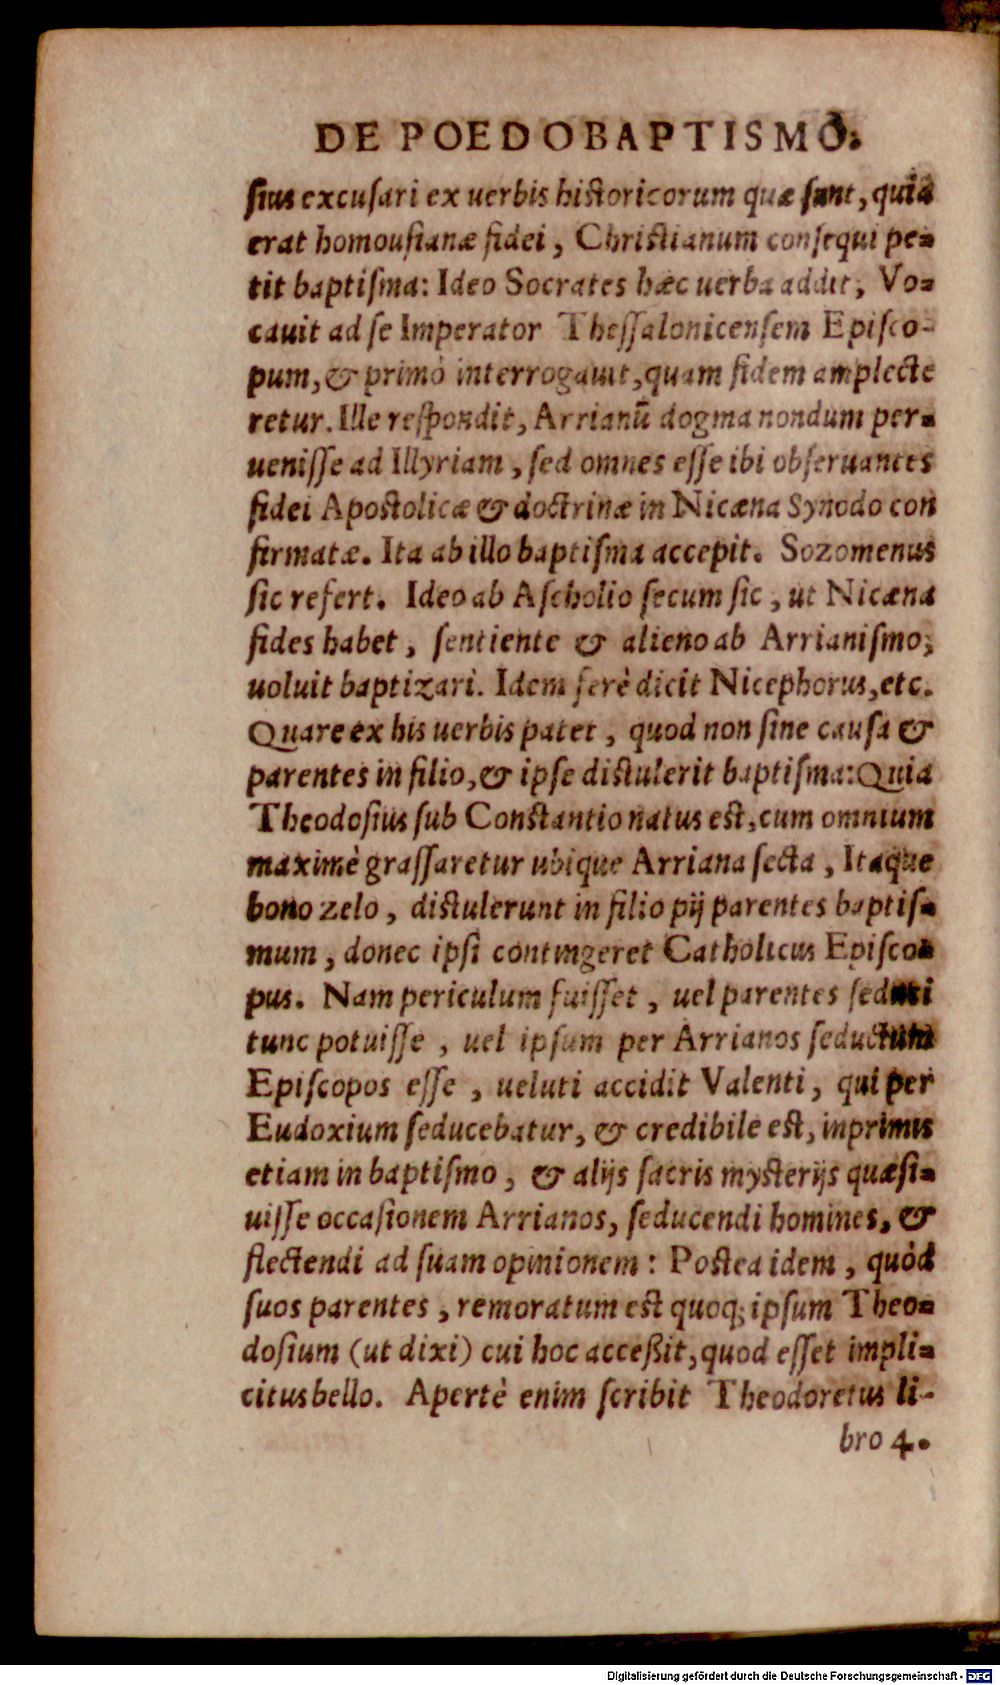 DE POEDOBAPTISMO.
ſius excuſari ex uerbis hiſtoricorum quæ ſunt, quia
erat homouſianæ fidei, Chriſtianum conſequi pe-
tit baptiſma: Ideo Socrates hæc uerba addit, Vo-
cauit ad ſe Imperator Theſſalonicenſem Epiſco-
pum, & primò interrogauit, quam fidem amplecte
retur. Ille reſpondit, Arrianū dogma nondum per-
ueniſſe ad Illyriam, ſed omnes eſſe ibi obſeruantes
fidei Apoſtolicæ & doctrinæ in Nicæna Synodo con
firmatæ. Ita ab illo baptiſma accepit. Sozomenus
ſic refert. Ideo ab Aſcholio ſecum ſic, ut Nicæna
fides habet, ſentiente & alieno ab Arrianiſmo,
uoluit baptizari. Idem ferè dicit Nicephorus, etc.
Quare ex his uerbis patet, quod non ſine cauſa &
parentes in filio, & ipſe diſtulerit baptiſma: Quia
Theodoſius ſub Conſtantio natus eſt, cum omnium
maximè graſſaretur ubique Arriana ſecta, Itaque
bono zelo, diſtulerunt in filio pij parentes baptiſ-
mum, donec ipſi contingeret Catholicus Epiſco-
pus. Nam periculum fuiſſet, uel parentes ſeduci
tunc potuiſſe, uel ipſum per Arrianos ſeductum
Epiſcopos eſſe, ueluti accidit Valenti, qui per
Eudoxium ſeducebatur, & credibile eſt, inprimis
etiam in baptiſmo, & alijs ſacris myſterijs quæſi-
uiſſe occaſionem Arrianos, ſeducendi homines, &
flectendi ad ſuam opinionem: Poſtea idem, quòd
ſuos parentes, remoratum eſt quoq; ipſum Theo-
doſium (ut dixi) cui hoc acceßit, quod eſſet impli-
citus bello. Apertè enim ſcribit Theodoretus li-
bro 4.
Digitalisierung gefördert durch die Deutsche Forschungsgemeinschaft - DFG